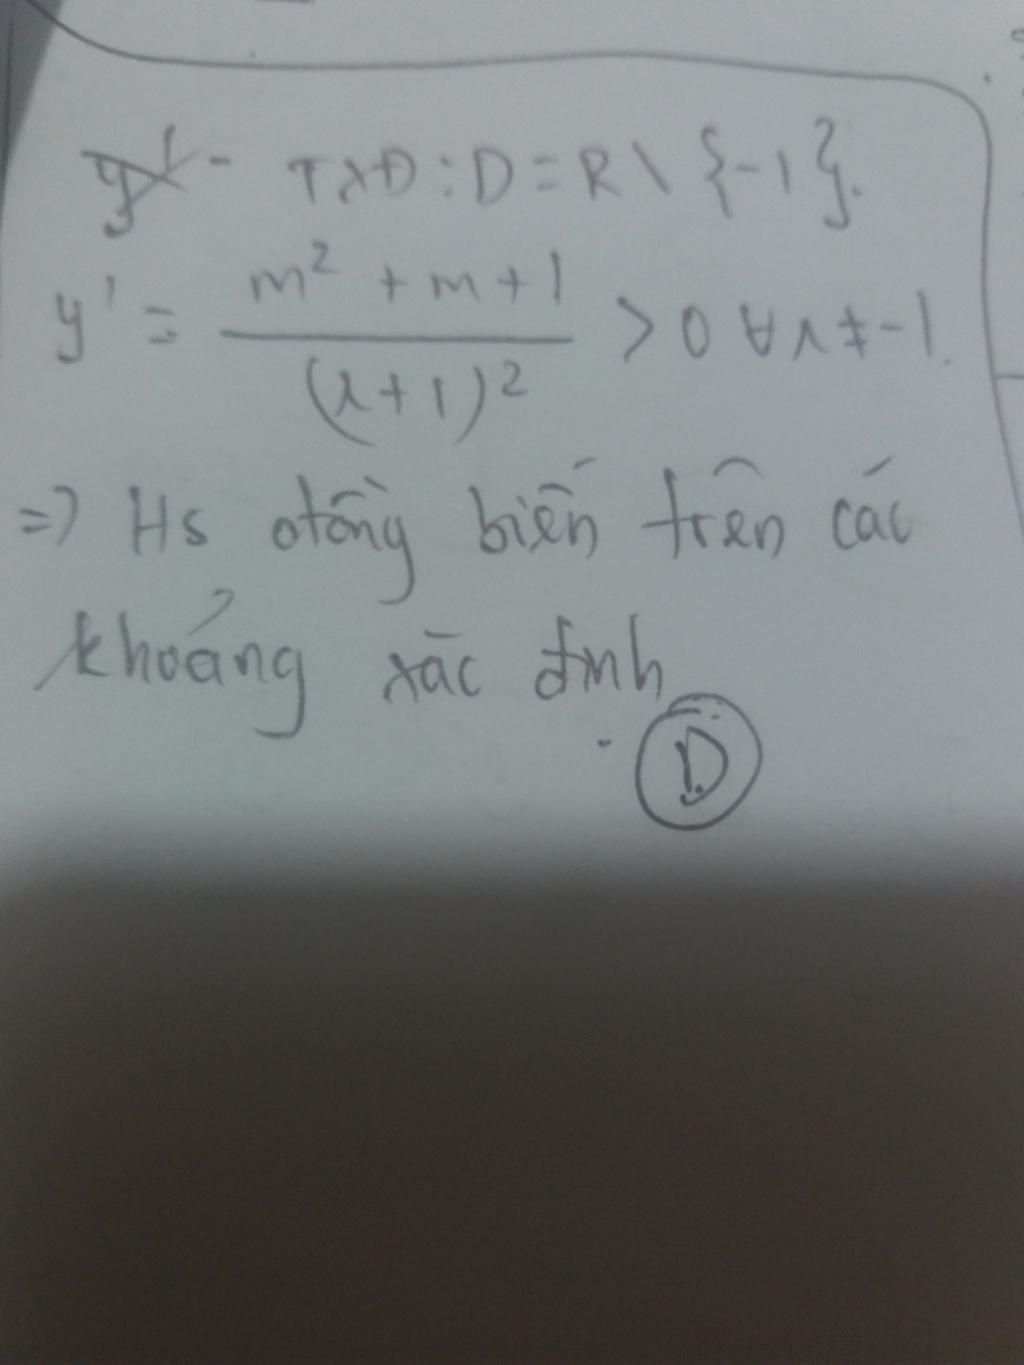 TXĐ : D = R \ {-1}.
y' = m² + m + 1 / (x+1)² > 0 ∀x ≠ -1.
=> Hs đồng biến trên các
khoảng xác định
D